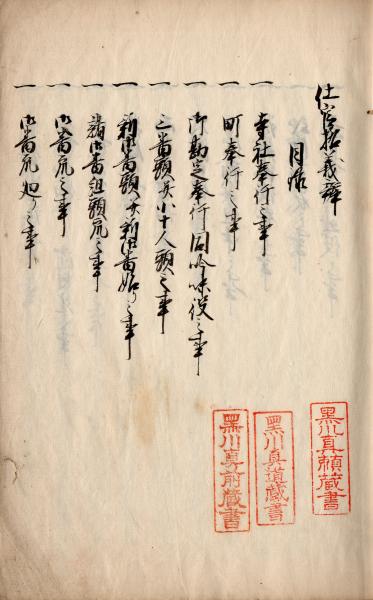 仕官格義弁
目録
一 寺社奉行之事
一 町奉行之事
一 御勘定奉行同吟味役之事
一 三番頭并小十人頭之事
一 新御番頭并新御番始り之事
一 諸御番組頭夙之事
一 御番夙之事
一 御番夙廻り之事
黒川真頼蔵書
黒川真道蔵書
黒川真前蔵書